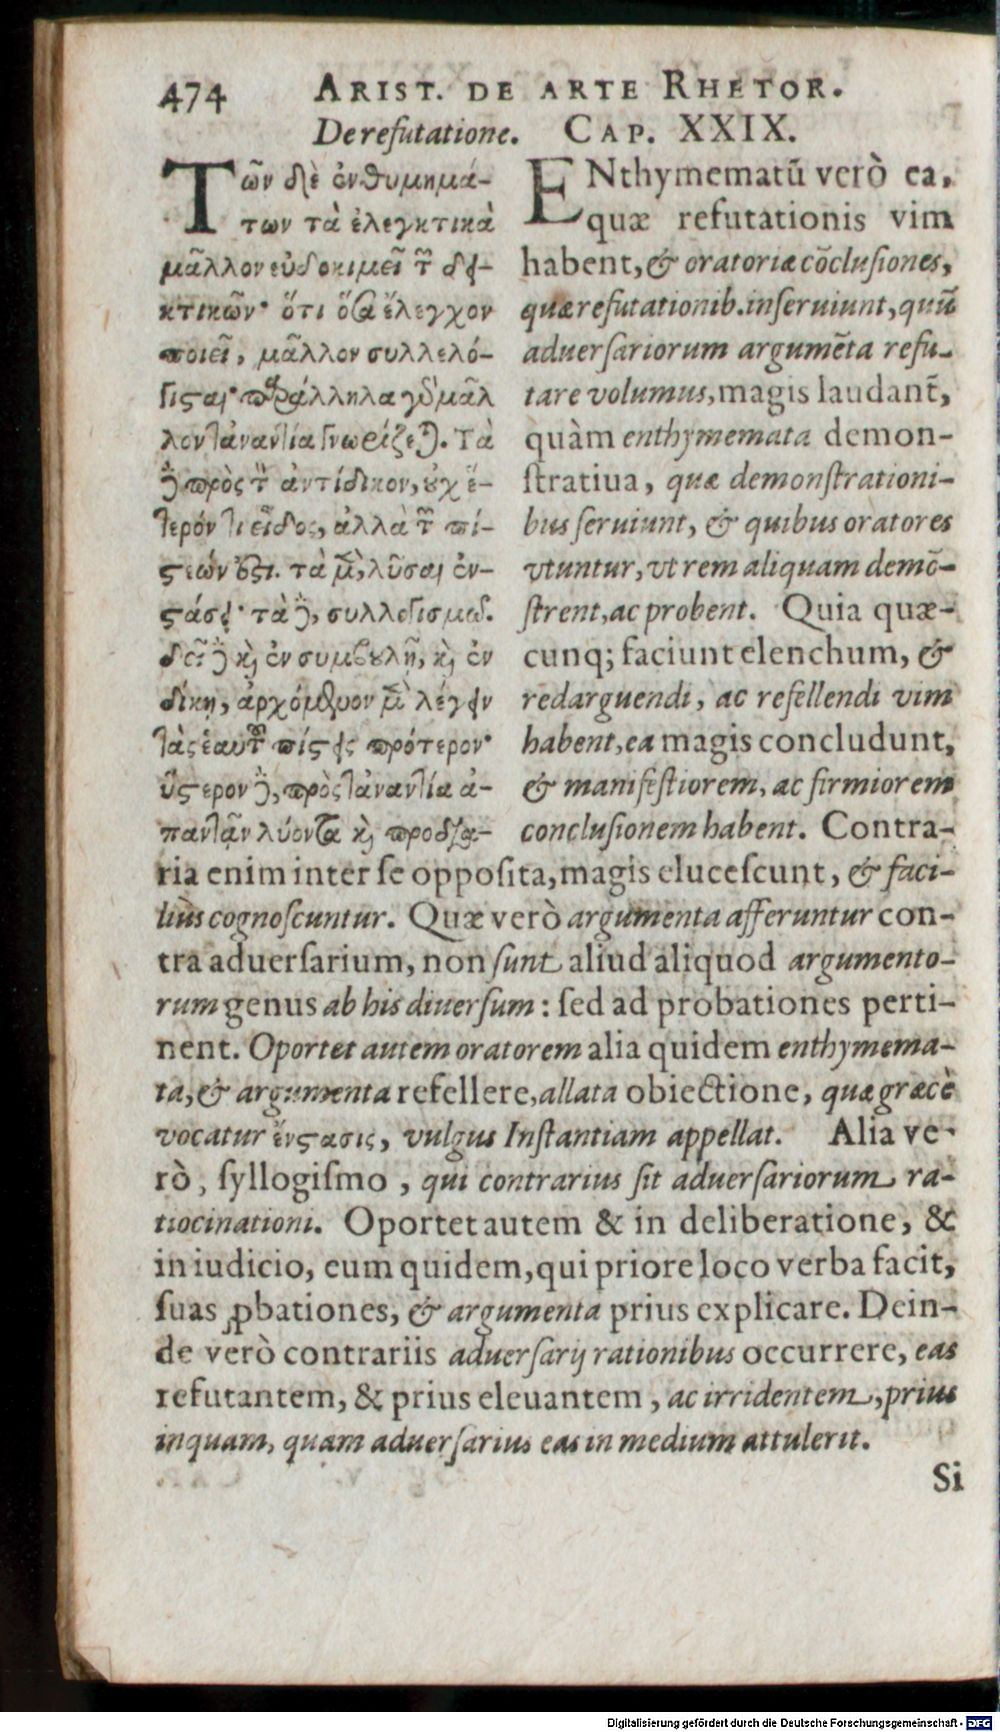 474 ARIST. DE ARTE RHETOR.
De refutatione. CAP. XXIX.
Τῶν δὲ ἐνθυμημά-
των τὰ ἐλεγκτικὰ
μᾶλλον εὐδοκιμεῖ τῶν δει-
κτικῶν· ὅτι ὅσα ἔλεγχον
ποιεῖ, μᾶλλον συλλελό-
γισται· παράλληλα γὰρ μᾶλ
λον τἀναντία γνωρίζεται. Τὰ
δὲ πρὸς τὸν ἀντίδικον, οὐχ ἕ-
τερόν τι εἶδος, ἀλλὰ τῶν πί-
στεών ἐστι. τὰ μὲν, λῦσαι ἐν-
στάσει· τὰ δὲ, συλλογισμῷ.
δεῖ δὲ καὶ ἐν συμβουλῇ, καὶ ἐν
δίκῃ, ἀρχόμενον μὲν λέγειν
τὰς ἑαυτοῦ πίστεις πρότερον·
ὕστερον δὲ, πρὸς τἀναντία ἀ-
παντᾶν λύοντα καὶ προδια-
ENthymematū verò ea,
quæ refutationis vim
habent, & oratoriæ cōclusiones,
quæ refutationib. inseruiunt, quū
aduersariorum argumēta refu-
tare volumus, magis laudant̄,
quàm enthymemata demon-
stratiua, quæ demonstrationi-
bus seruiunt, & quibus oratores
vtuntur, vt rem aliquam demō-
strent, ac probent. Quia quæ-
cunq; faciunt elenchum, &
redarguendi, ac refellendi vim
habent, ea magis concludunt,
& manifestiorem, ac firmiorem
conclusionem habent. Contra-
ria enim inter se opposita, magis elucescunt, & faci-
liùs cognoscuntur. Quæ verò argumenta afferuntur con-
tra aduersarium, non sunt aliud aliquod argumento-
rum genus ab his diuersum: sed ad probationes perti-
nent. Oportet autem oratorem alia quidem enthymema-
ta, & argumenta refellere, allata obiectione, quæ græcè
vocatur ἔνστασις, vulgus Instantiam appellat. Alia ve-
rò, syllogismo, qui contrarius sit aduersariorum ra-
tiocinationi. Oportet autem & in deliberatione, &
in iudicio, eum quidem, qui priore loco verba facit,
suas ꝓbationes, & argumenta prius explicare. Dein-
de verò contrariis aduersarij rationibus occurrere, eas
refutantem, & prius eleuantem, ac irridentem, prius
inquam, quam aduersarius eas in medium attulerit.
Si
Digitalisierung gefördert durch die Deutsche Forschungsgemeinschaft - DFG